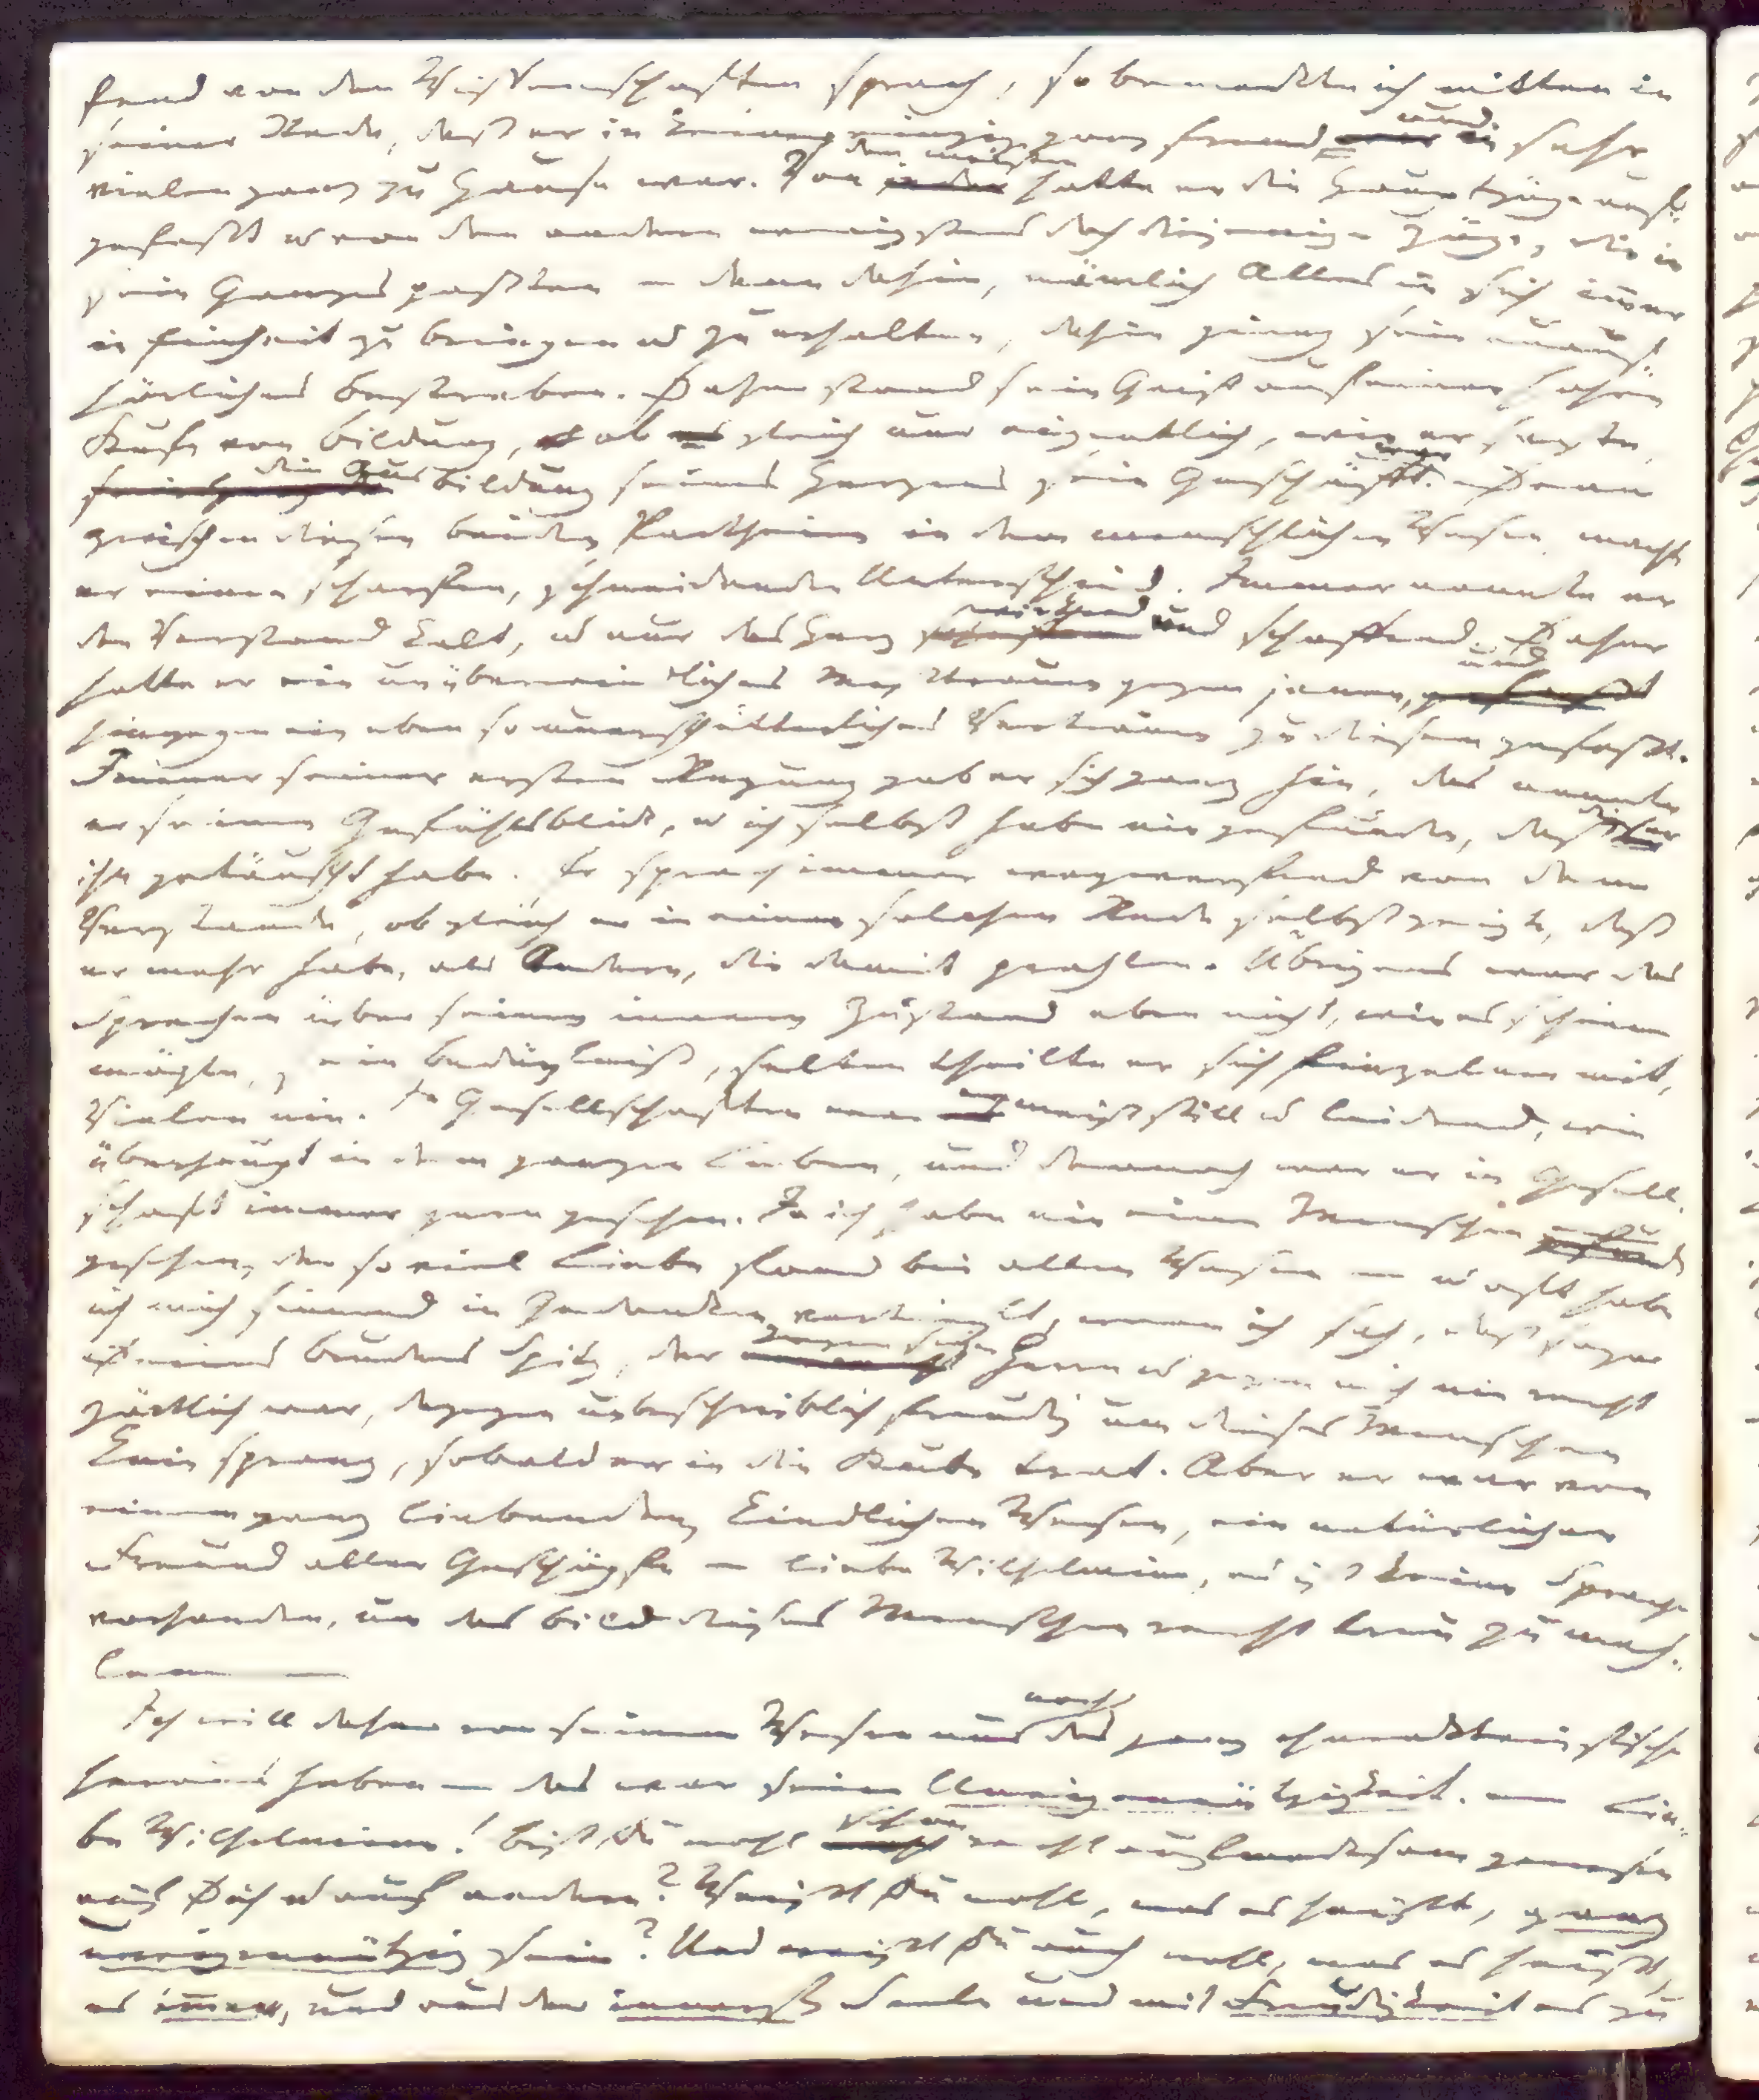 fend von den Wissenschaften sprach, so bemerkte ich mitten in
seiner Rede, daß er in keiner einzig ganz fremd und in sehr
vielen ganz zu Hause war. Von den meisten hatte er die Hauptzüge auf-
gefaßt u von den andern wenigstens doch diejenigen Züge, die in
sein Ganzes paßten – denn dahin, nämlich Alles in sich immer
in Einheit zu bringen u zu erhalten, dahin ging sein unauf-
hörliches Bestreben. Daher stand sein Geist auf einer hohen
Stufe von Bildung, ob gleich nur eigentlich, wie er sagte,
die Ausbildung seines Herzens sein Geschäfft war. Denn
zwischen diesen beiden Partheien in dem menschlichen Wesen, machte
er einen scharfen, schneidenden Unterschied. Immer nannte er
den Verstand kalt, u nur das Herz wirkend und schaffend. Daher
hatte er ein unüberwindliches Mistrauen gegen jenen, und
hingegen ein eben so unerschütterliches Vertrauen zu diesem gefaßt.
Immer seiner ersten Regung gab er sich ganz hin, das nannte
er seinen Gefühlsblick, u ich selbst habe nie gefunden, daß dieser
ihn getäuscht habe. Er sprach immer wegwerfend von dem
Verstande, obgleich er in einer solchen Rede selbst zeigte, daß
er mehr habe, als Andere, die damit prahlen. Übrigens war das
Sprechen über seinen innern Zustand eben nicht, wie es scheinen
mögte, sein Bedürfniß, selten theilte er sich Einzelnen mit,
Vielen nie. In Gesellschaften war er meist still u leidend, wie
überhaupt in dem ganzen Leben, und dennoch war er in Gesell-
schaft immer gern gesehen. Ja ich habe nie einen Menschen
gesehen, der so viel Liebe fand bei allen Wesen – u oft habe
ich mich sinnend in Gedanken vertieft, wenn ich sah, daß sogar
Deines Bruders Spitz, der gegen seinen Herrn u gegen mich nie recht
zärtlich war, dagegen unbeschreiblich freudig um dieses Menschen
Knie sprang, sobald er in die Stube trat. Aber er war von
einem ganz liebenden kindlichen Wesen, ein natürlicher
Freund aller Geschöpfe – liebe Wilhelmine, es ist keine Sprache
vorhanden, um das Bild dieses Menschen recht treu zu mah-
len –
Ich will daher von seinem Wesen nur noch das ganz charakteristische
herausheben – das war seine Uneigennützigkeit. – Lie-
be Wilhelmine! Bist Du wohl schon recht aufmerksam gewesen
auf Dich u auf andere? Weißt Du wohl, was es heißt, ganz
uneigennützig sein? Und weißt Du auch wohl, was es heißt,
es immer, und aus der innersten Seele und mit Freudigkeit es zu